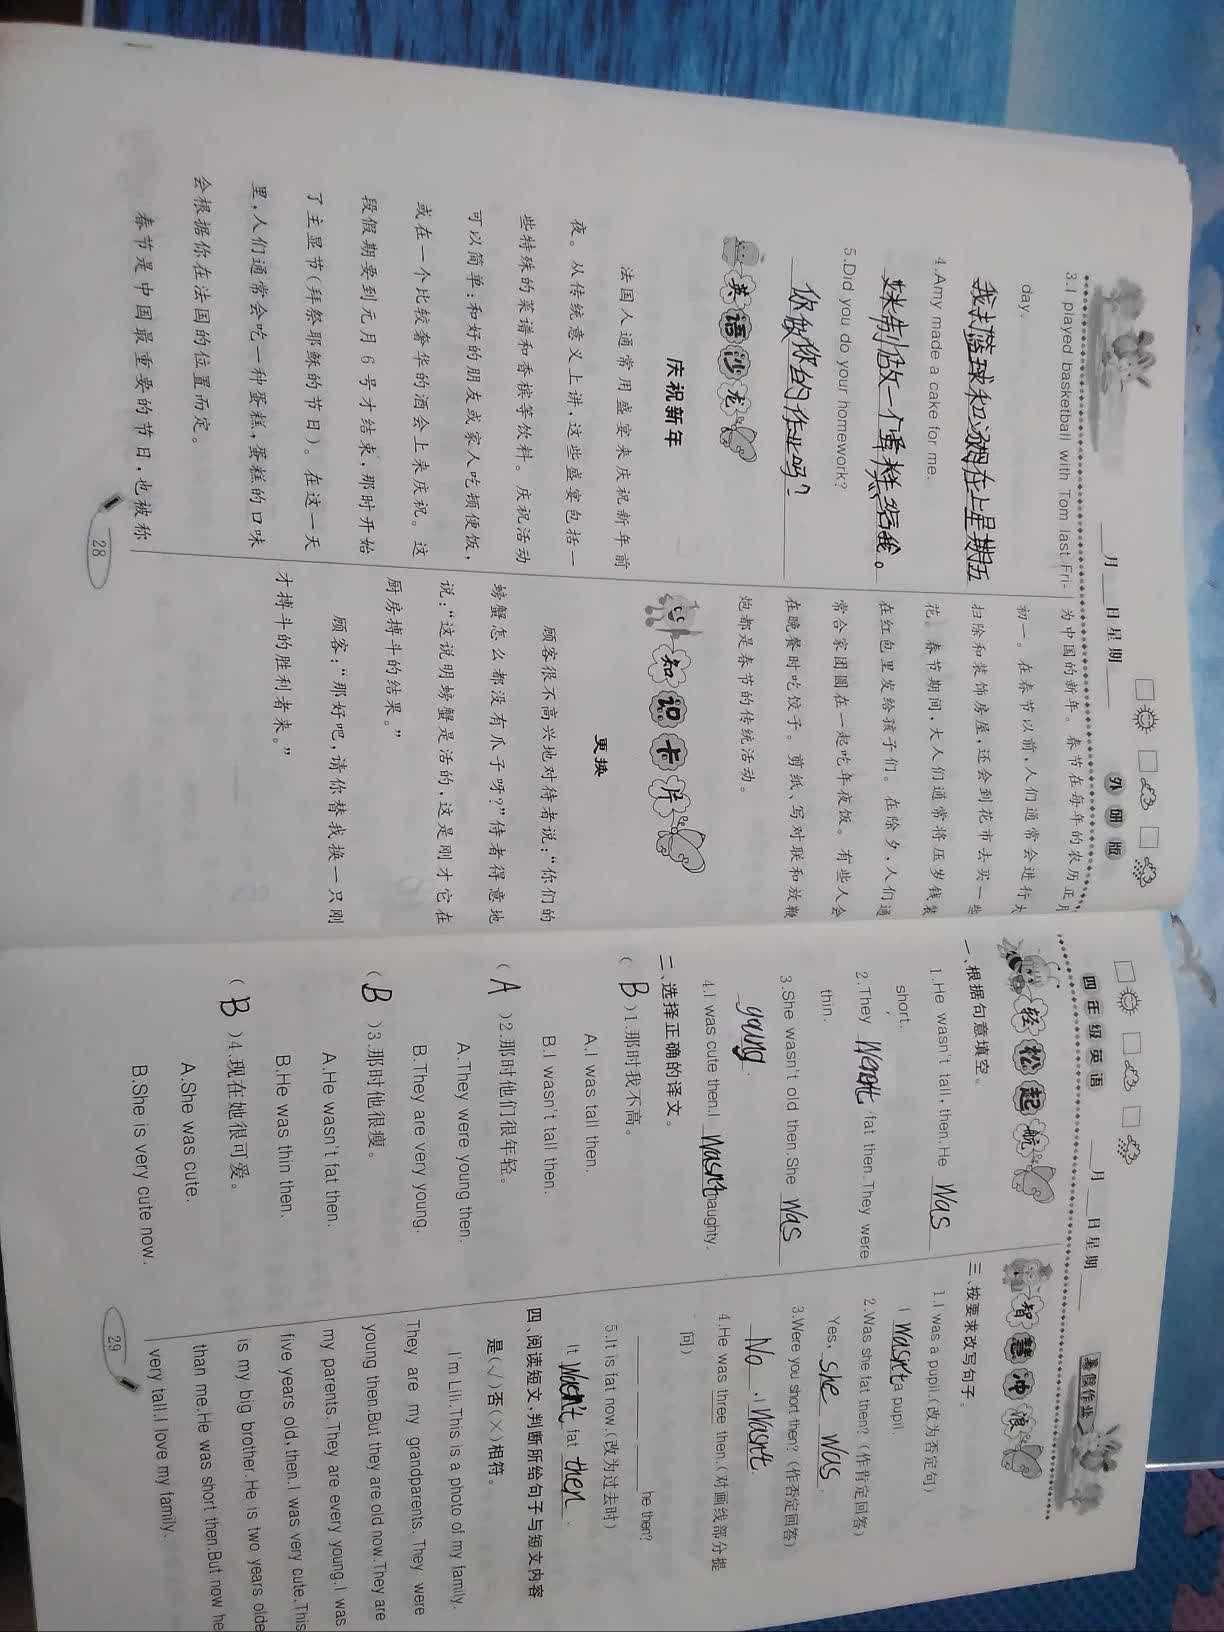 月 日 星期
外研版
3.I played basketball with Tom last Fri-
day.
我打篮球和汤姆在上星期五
4.Amy made a cake for me.
做一个蛋糕给我。
5.Did you do your homework?
你做你的作业吗?
英语沙龙
庆祝新年
法国人通常用盛宴来庆祝新年前
夜。从传统意义上讲,这些盛宴包括一
些特殊的菜谱和香槟等饮料。庆祝活动
可以简单:和好的朋友或家人吃顿便饭,
或在一个比较奢华的酒会上来庆祝。这
段假期要到元月6号才结束,那时开始
了主显节(拜祭耶稣的节日)。在这一天
里,人们通常会吃一种蛋糕,蛋糕的口味
会根据你在法国的位置而定。
春节是中国最重要的节日,也被称
28
为中国的新年。春节在每年的农历正月
初一。在春节以前,人们通常会进行大
扫除和装饰房屋,还会到花市去买一些
花。春节期间,大人们通常将压岁钱装
在红包里发给孩子们。在除夕,人们通
常合家团圆在一起吃年夜饭。有些人会
在晚餐时吃饺子。剪纸、写对联和放鞭
炮都是春节的传统活动。
知识卡片
更换
顾客很不高兴地对侍者说:“你们的
螃蟹怎么都没有爪子呀?”侍者得意地
说:“这说明螃蟹是活的,这是刚才它在
厨房搏斗的结果。”
顾客:“那好吧,请你替我换一只刚
才搏斗的胜利者来。”
四年级英语
月 日 星期
暑假作业
轻松起航
一、根据句意填空。
1.He wasn't tall, then.He Was
short.
2.They Weren't fat then.They were
thin.
3.She wasn't old then.She Was
young.
4.I was cute then.I Wasn't naughty.
二、选择正确的译文。
( B )1.那时我不高。
A.I was tall then.
B.I wasn't tall then.
( A )2.那时他们很年轻。
A.They were young then.
B.They are very young.
( B )3.那时他很瘦。
A.He wasn't fat then.
B.He was thin then.
( B )4.现在她很可爱。
A.She was cute.
B.She is very cute now.
智慧冲浪
三、按要求改写句子。
1.I was a pupil.(改为否定句)
I Wasn't a pupil.
2.Was she fat then? (作肯定回答)
Yes, she was.
3.Were you short then? (作否定回答)
No, I Wasn't.
4.He was three then.(对画线部分提
问)
he then?
5.It is fat now.(改为过去时)
It Wasn't fat then.
四、阅读短文,判断所给句子与短文内容
是(√)否(×)相符。
I'm Lili.This is a photo of my family.
They are my grandparents. They were
young then.But they are old now.They are
my parents.They are every young.I was
five years old, then.I was very cute.This
is my big brother.He is two years olde
than me.He was short then.But now he
very tall.I love my family.
29